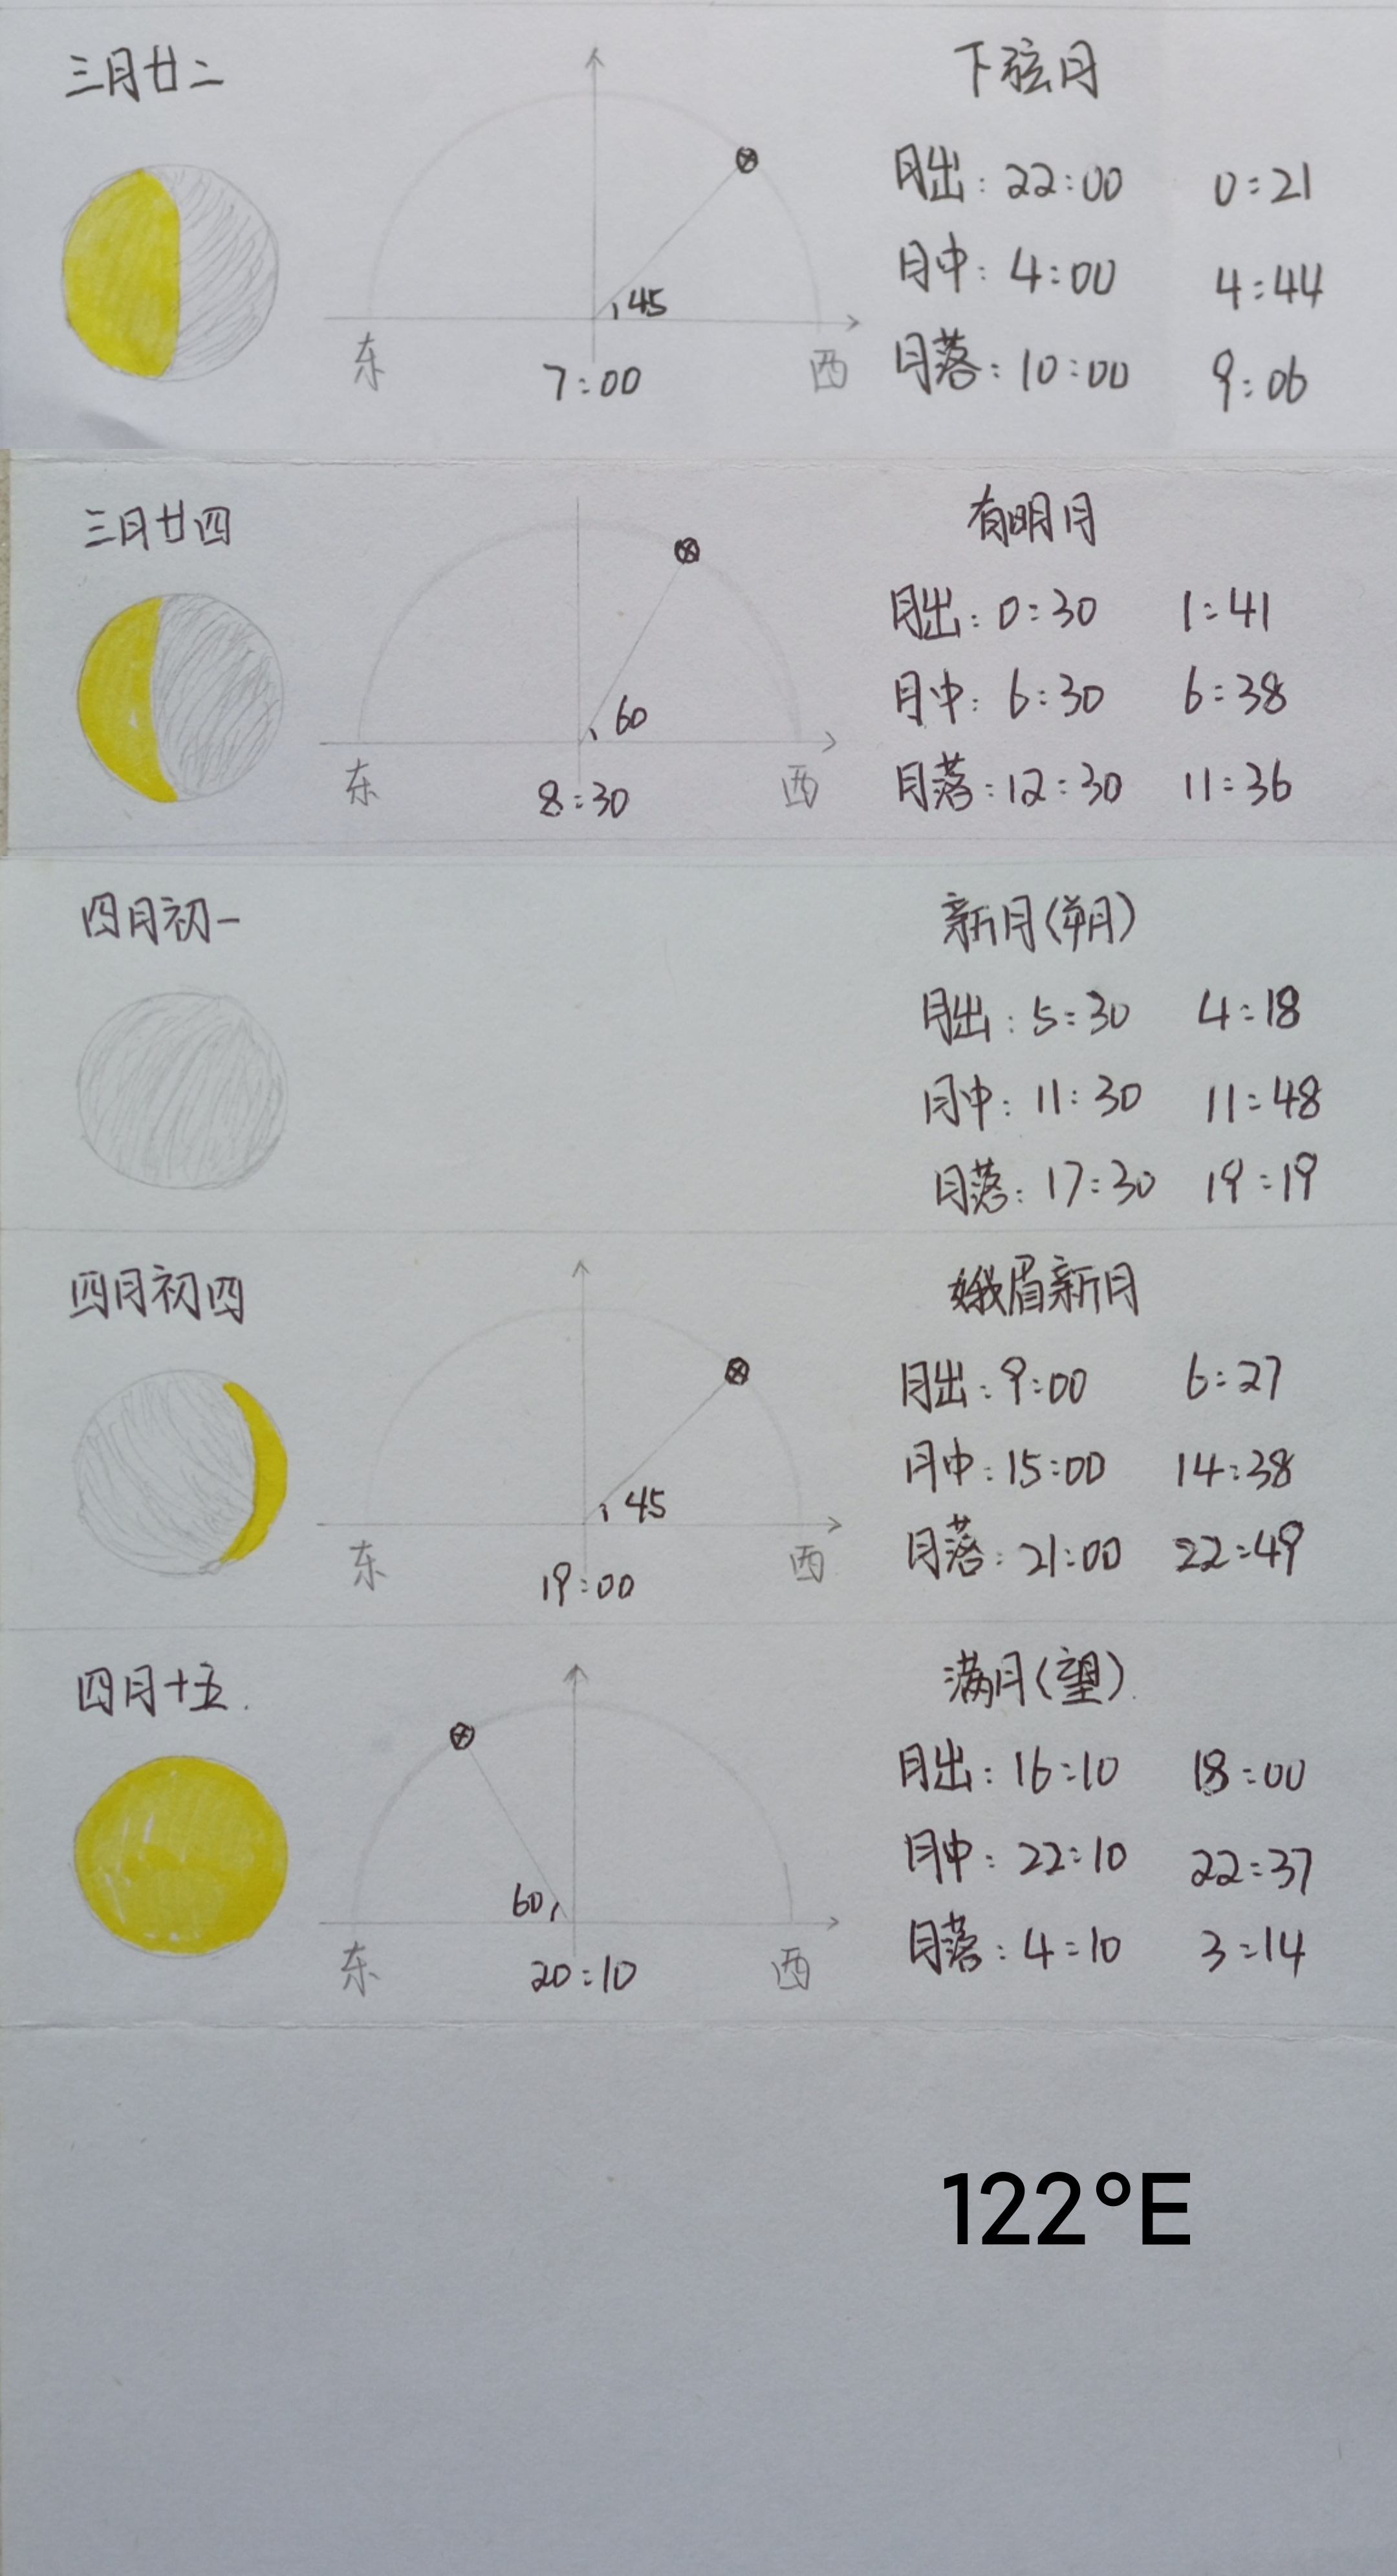 三月廿二
下弦月
月出：22:00 0:21
月中：4:00 4:44
45
月落：10:00 9:06
东 7:00 西
三月廿四
有明月
月出：0:30 1:41
月中：6:30 6:38
60
月落：12:30 11:36
东 8:30 西
四月初一
新月(朔月)
月出：5:30 4:18
月中：11:30 11:48
月落：17:30 19:19
四月初四
娥眉新月
月出：9:00 6:27
月中：15:00 14:38
45
月落：21:00 22:49
东 19:00 西
四月十五.
满月(望).
月出：16:10 18:00
月中：22:10 22:37
60
月落：4:10 3:14
东 20:10 西
122°E